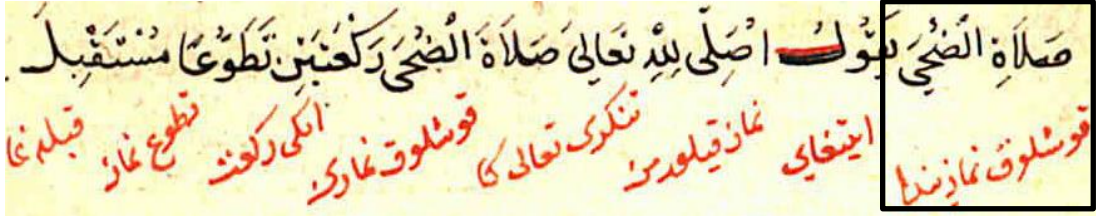 صَلَاةِ الْضُّحَي يَقُوُلُ اُصَلّى لِلّٰهِ تَعَالىَ صَلَاةَ الْضُحَى رَكْعَتَيْنِ تَطَوُّعًا مُسْتَقْبِلَ
قوشلوق نمازیندا ایتغای نماز قیلورمن تنکری تعالی کا قوشلوق نمازی ایکی رکعت تطوع نماز قبله غا